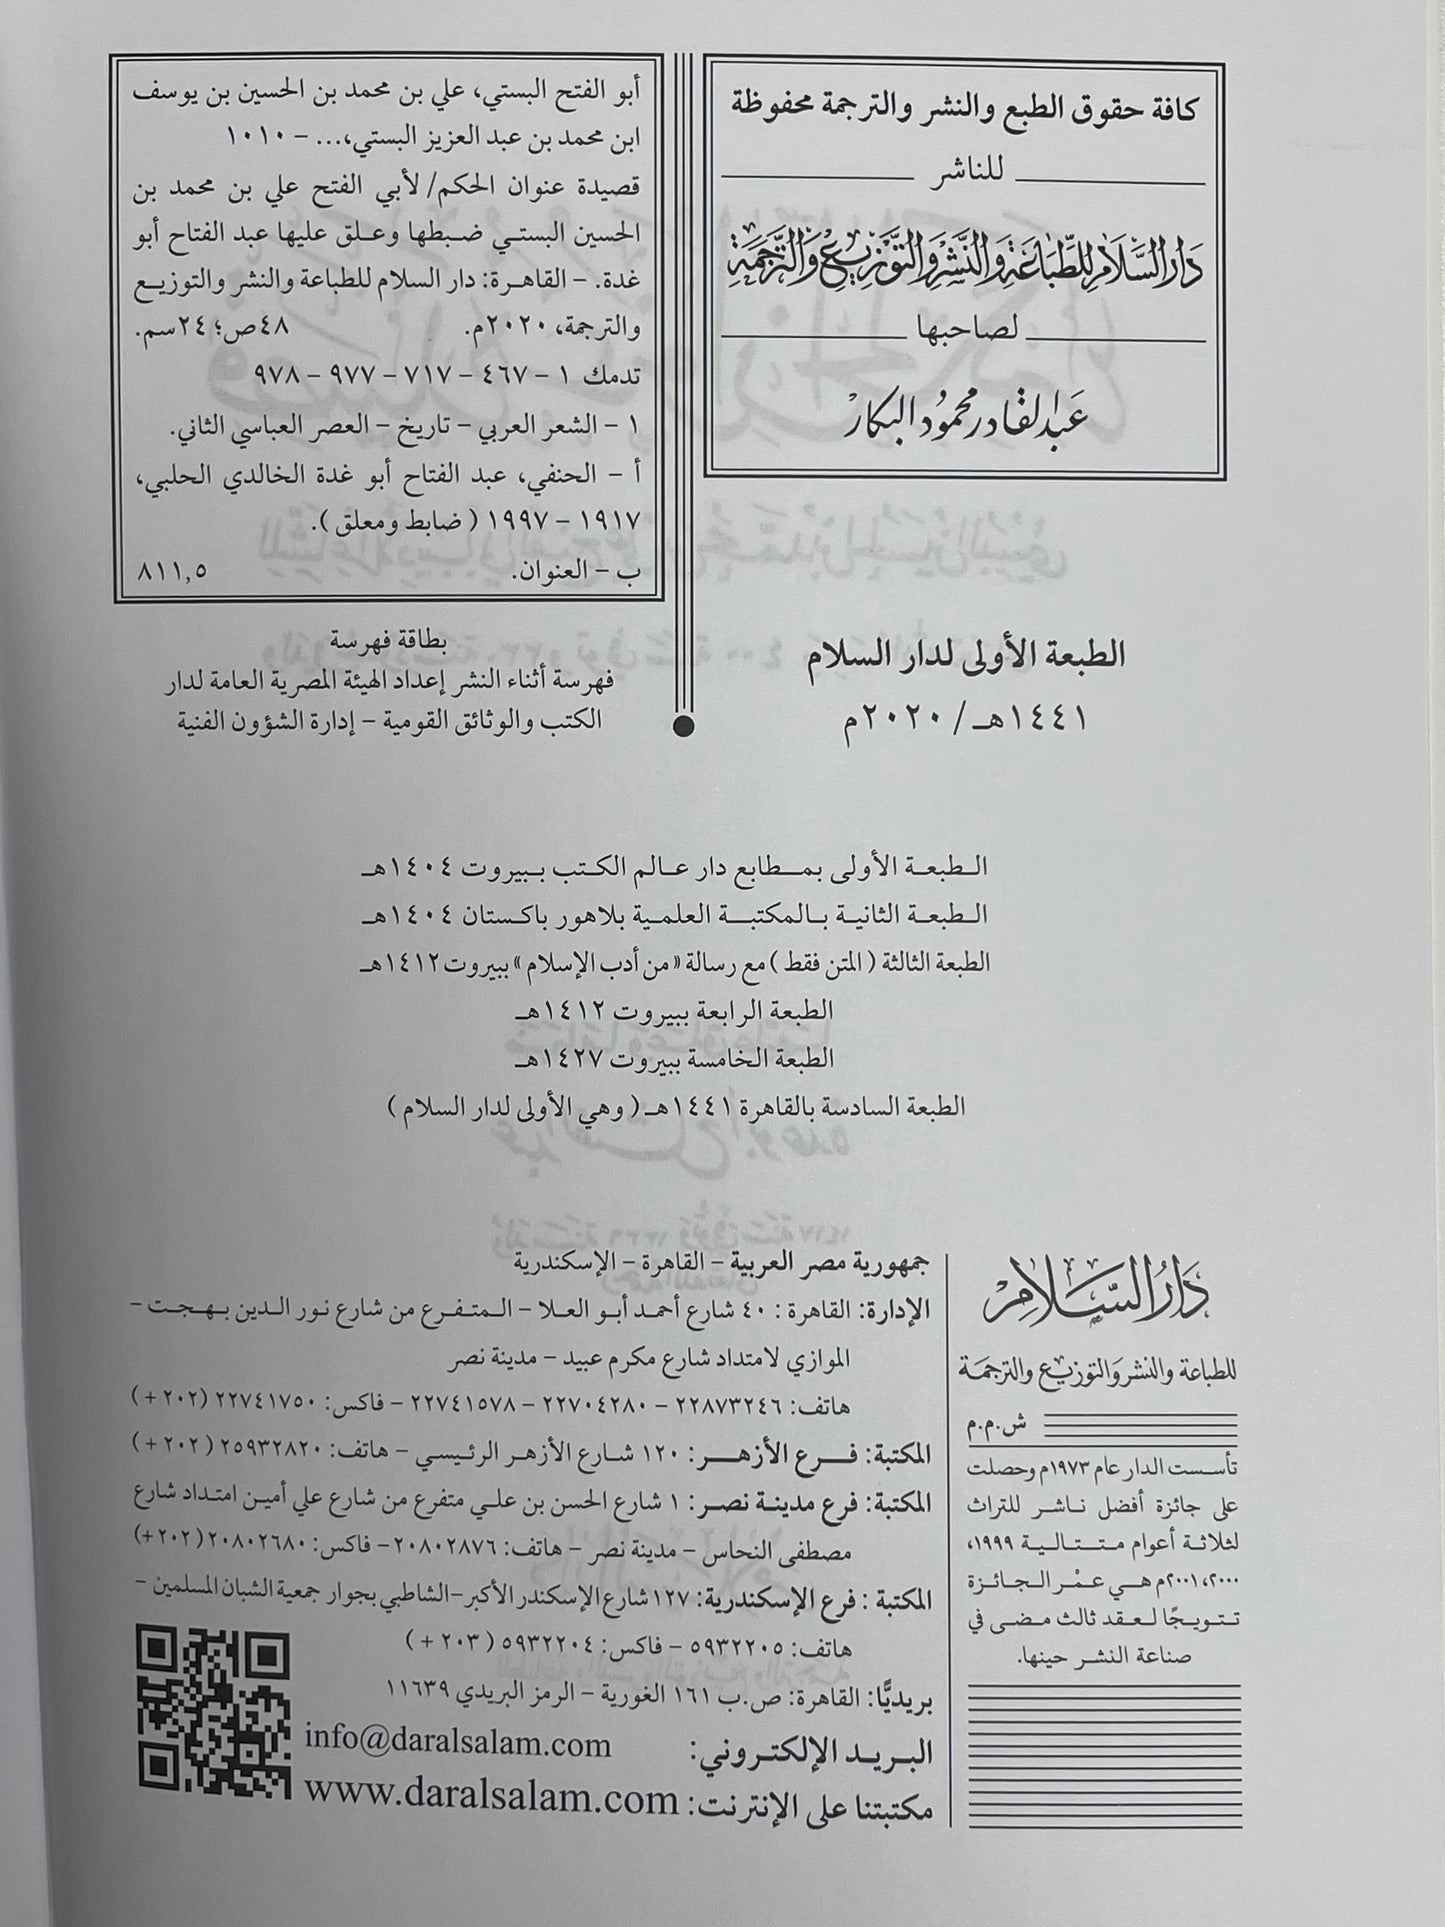 كافة حقوق الطبع والنشر والترجمة محفوظة
للناشر
دَارُ السَّلَامِ لِلطِّبَاعَةِ وَالنَّشْرِ وَالتَّوْزِيعِ وَالتَّرْجَمَةِ
لصاحبها
عبد القادر محمود البكار
الطبعة الأولى لدار السلام
١٤٤١هـ / ٢٠٢٠م
أبو الفتح البستي، علي بن محمد بن الحسين بن يوسف
ابن محمد بن عبد العزيز البستي،... – ١٠١٠
قصيدة عنوان الحكم/ لأبي الفتح علي بن محمد بن
الحسين البستي ضبطها وعلق عليها عبد الفتاح أبو
غدة. – القاهرة: دار السلام للطباعة والنشر والتوزيع
والترجمة، ٢٠٢٠م. ٤٨ص؛ ٢٤سم.
تدمك ١ – ٤٦٧ – ٧١٧ – ٩٧٧ – ٩٧٨
١ – الشعر العربي – تاريخ – العصر العباسي الثاني.
أ – الحنفي، عبد الفتاح أبو غدة الخالدي الحلبي،
١٩١٧ – ١٩٩٧ ( ضابط ومعلق ).
ب – العنوان. ٨١١,٥
بطاقة فهرسة
فهرسة أثناء النشر إعداد الهيئة المصرية العامة لدار
الكتب والوثائق القومية – إدارة الشؤون الفنية
الطبعة الأولى بمطابع دار عالم الكتب ببيروت ١٤٠٤هـ
الطبعة الثانية بالمكتبة العلمية بلاهور باكستان ١٤٠٤هـ
الطبعة الثالثة ( المتن فقط ) مع رسالة «من أدب الإسلام» ببيروت ١٤١٢هـ
الطبعة الرابعة ببيروت ١٤١٢هـ
الطبعة الخامسة ببيروت ١٤٢٧هـ
الطبعة السادسة بالقاهرة ١٤٤١هـ ( وهي الأولى لدار السلام )
دَارُ السَّلَامِ
للطباعة والنشر والتوزيع والترجمة
ش.م.م
تأسست الدار عام ١٩٧٣م وحصلت
على جائزة أفضل ناشر للتراث
لثلاثة أعوام متتالية ١٩٩٩،
٢٠٠٠، ٢٠٠١م هي عمْر الجائزة
تتويجًا لعقد ثالث مضى في
صناعة النشر حينها.
جمهورية مصر العربية – القاهرة – الإسكندرية
الإدارة: القاهرة : ٤٠ شارع أحمد أبو العلا – المتفرع من شارع نور الدين بهجت –
الموازي لامتداد شارع مكرم عبيد – مدينة نصر
هاتف: ٢٢٨٧٣٢٤٦ – ٢٢٧٠٤٢٨٠ – ٢٢٧٤١٥٧٨ – فاكس: ٢٢٧٤١٧٥٠ (٢٠٢ +)
المكتبة: فرع الأزهر: ١٢٠ شارع الأزهر الرئيسي – هاتف: ٢٥٩٣٢٨٢٠ (٢٠٢ +)
المكتبة: فرع مدينة نصر: ١ شارع الحسن بن علي متفرع من شارع علي أمين امتداد شارع
مصطفى النحاس – مدينة نصر – هاتف: ٢٠٨٠٢٨٧٦ – فاكس: ٢٠٨٠٢٦٨٠ (٢٠٢+)
المكتبة : فرع الإسكندرية: ١٢٧ شارع الإسكندر الأكبر–الشاطبي بجوار جمعية الشبان المسلمين –
هاتف: ٥٩٣٢٢٠٥ – فاكس: ٥٩٣٢٢٠٤ (٢٠٣ +)
بريديًّا: القاهرة: ص.ب ١٦١ الغورية – الرمز البريدي ١١٦٣٩
البريد الإلكتروني: info@daralsalam.com
مكتبتنا على الإنترنت: www.daralsalam.com